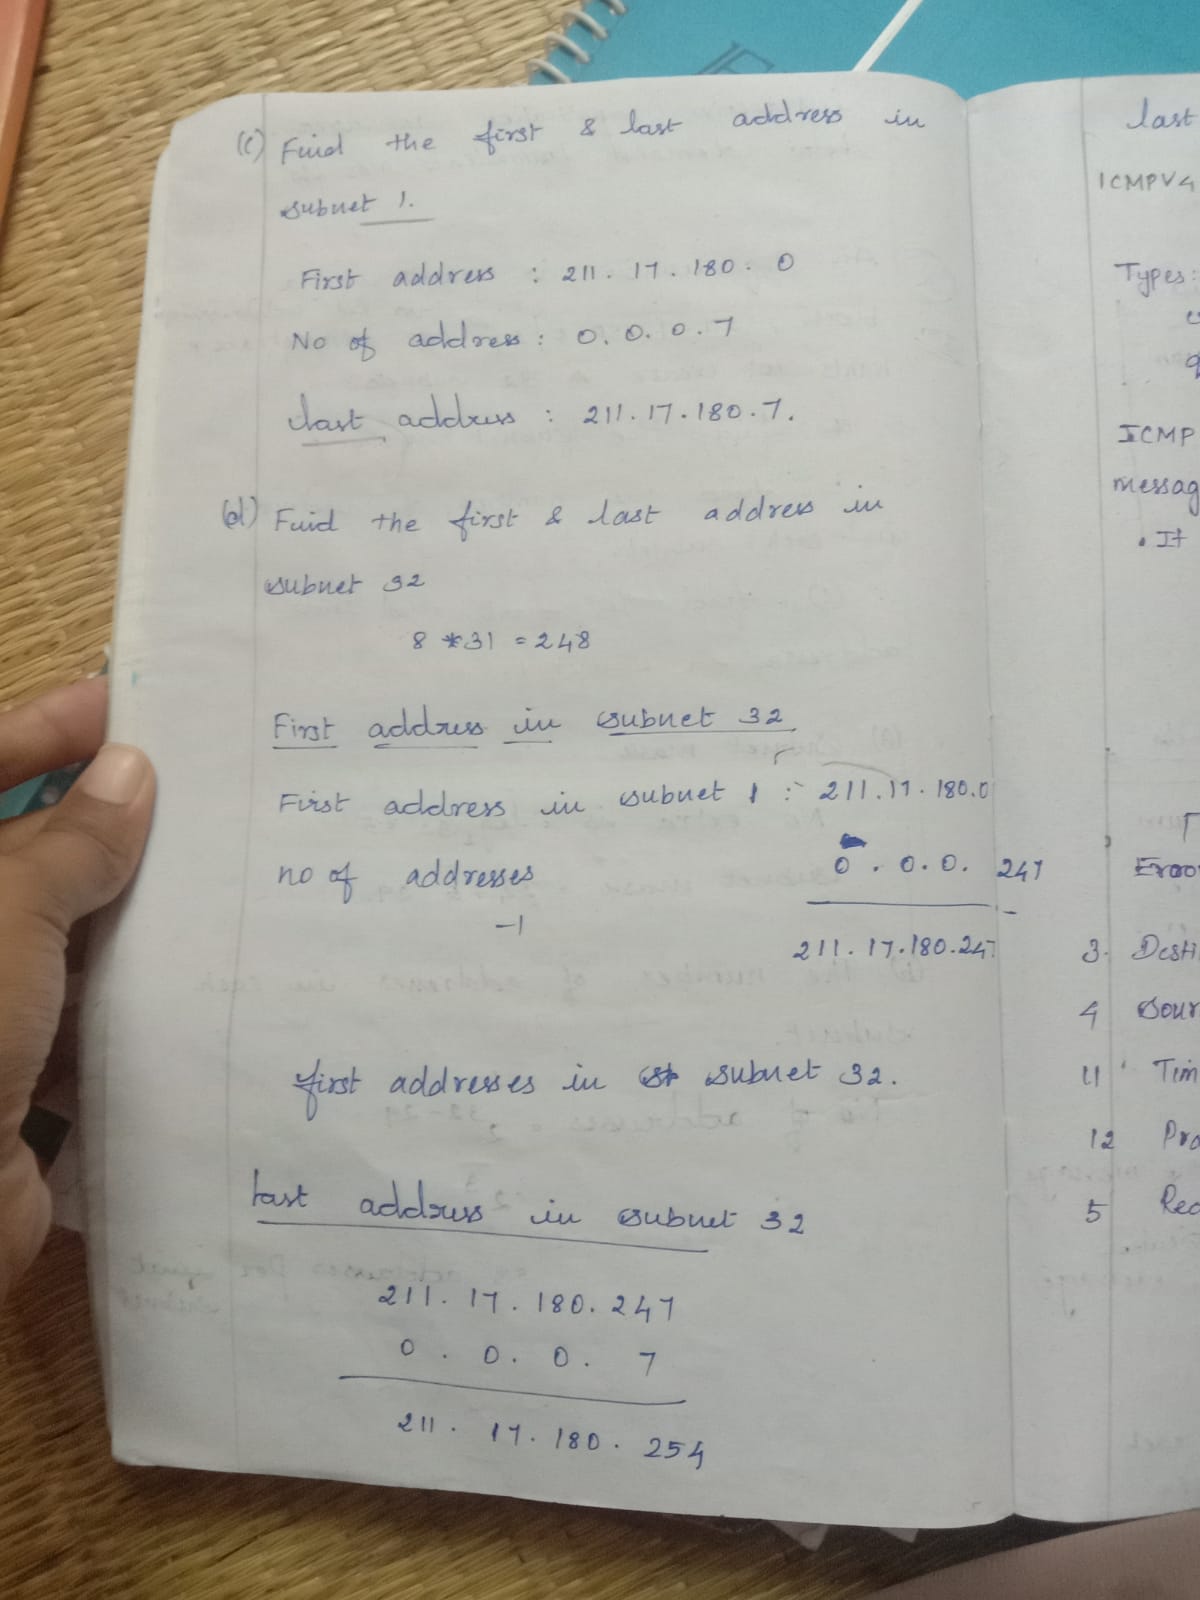 (c) Find the first & last address in
subnet 1.
First address : 211. 17. 180. 0
No of address : 0. 0. 0. 7
last address : 211.17.180.7.
(d) Find the first & last address in
subnet 32
8 * 31 = 248
First address in subnet 32
First address in subnet 1 :- 211.17.180.0
no of addresses 0. 0. 0. 247
-1
211. 17.180.247
first addresses in subnet 32.
last address in subnet 32
211. 17. 180. 247
0. 0. 0. 7
211. 17. 180. 254
last
ICMPV4
Types:
ICMP
messag
• It
3. Desti
4 Sour
11 Tim
12 Pro
5 Red